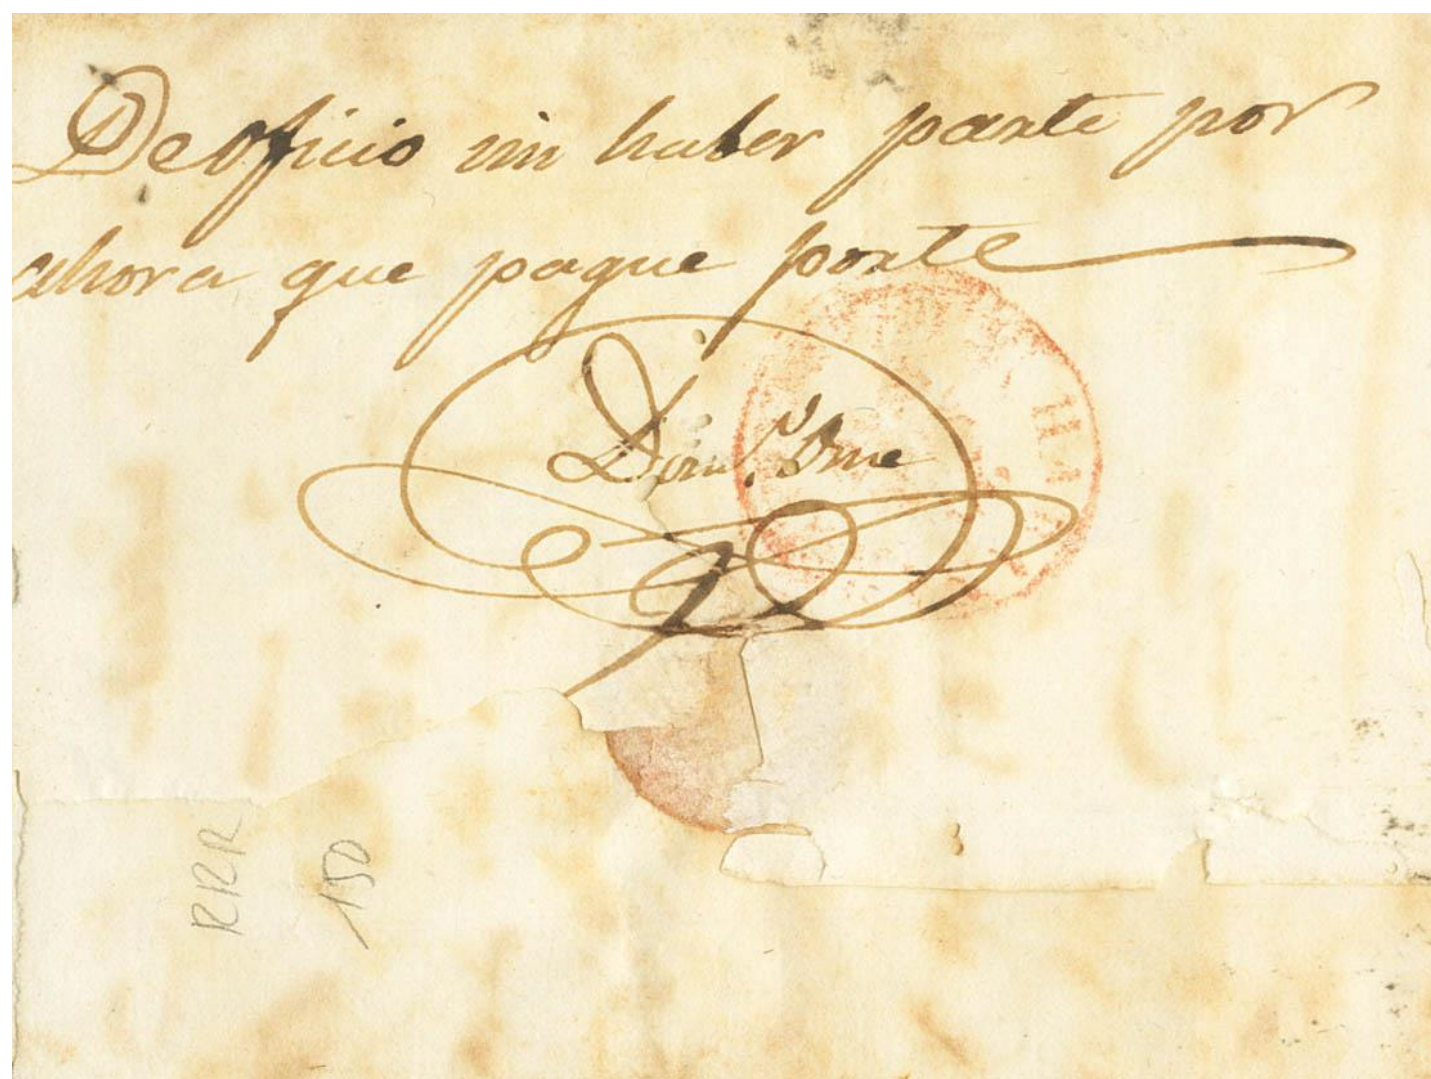 De oficio sin haber parte por
ahora que pague porte
RRR
150